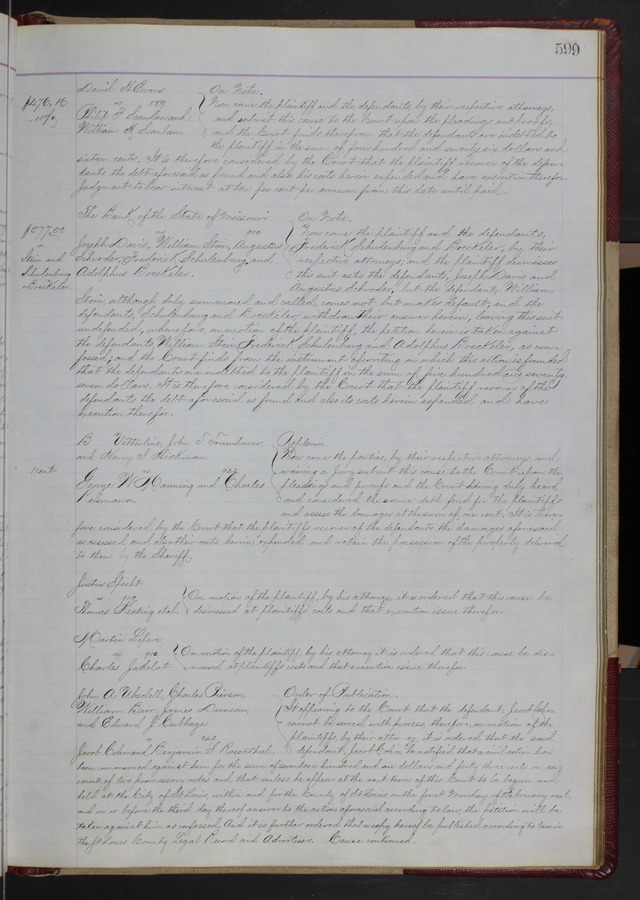 599
David H Evans } On Note.
$476.16 vs 850 Now come the plaintiff and the defendants by their respective attorneys,
10%
Philip F Scanlan and and submit this cause to the Court upon the pleadings and proofs,
William H Scanlan and the Court finds therefrom that the defendants are indebted to
the plaintiff in the sum of four hundred and seventy six dollars and
sixteen cents. It is therefore considered by the Court that the plaintiff recover of the defen-
dants the debt aforesaid as found and also his costs herein expended and have execution therefor.
Judgment to bear interest at ten per cent per annum from this date until paid.
The Bank of the State of Missouri } On Note.
$577.00 vs Now come the plaintiff and the defendants,
Joseph Davis, William Stein, Augustus Frederick Schulenburg and Boeckeler, by their
Stein and Schroder, Frederick Schulenburg and respective attorneys, and the plaintiff dismisses
Schulenburg Adolphus Boeckeler. this suit as to the defendants, Joseph Davis and
& Boeckeler Augustus Schroder, but the defendant, William
Stein, although duly summoned and called, comes not but makes default, and the
defendants, Schulenburg and Boeckeler, withdraw their answer herein, leaving this suit
undefended, wherefore, on motion of the plaintiff, the petition herein is taken against
the defendants William Stein, Frederick Schulenburg and Adolphus Boeckeler, as con-
fessed; and the Court finds from the instrument of writing on which this action is founded
that the defendants are indebted to the plaintiff in the sum of five hundred and seventy
seven dollars. It is therefore considered by the Court that the plaintiff recover of the
defendants the debt aforesaid as found and also its costs herein expended and have
execution therefor.
B John and Harry I Hickman } Replevin
Now come the parties, by their respective attorneys, and
1 cent vs waiving a jury submit this cause to the Court upon the
George W Manning and Charles pleadings and proofs and the Court having duly heard
and considered the same doth find for the plaintiffs
and assess the damages at the sum of one cent. It is there-
fore considered by the Court that the plaintiffs recover of the defendants the damages aforesaid
as assessed and also their costs herein expended and retain the possession of the property delivered
to them by the Sheriff.
Justus Specht
vs } On motion of the plaintiff, by his attorney, it is ordered that this cause be
Thomas et al. dismissed at plaintiff's costs and that execution issue therefor.
Martin Lefevre
vs } On motion of the plaintiff, by his attorney it is ordered that this cause be dis-
Charles missed at plaintiff's costs and that execution issue therefor.
John A Ubsdell, Charles Pierson, } Order of Publication.
William Barr, James Duncan It appearing to the Court that the defendant, Jacob Cohn
and Edward J Cubbage cannot be served with process therefore, on motion of the
vs plaintiffs, by their attorney, it is ordered that the said
Jacob Cohn and Benjamin S Rosenthal. defendant, Jacob Cohn be notified that a civil action has
been commenced against him for the sum of seventeen hundred and one dollars and forty three cents on ac-
count of two promissory notes and that unless he appear at the next term of this Court to be begun and
held at the City of St Louis, within and for the County of St Louis, on the first Monday of February next
and on or before the third day thereof answer to the action aforesaid according to law, the petition will be
taken against him as confessed. And it is further ordered that a copy hereof be published according to law in
the St Louis County Legal Record and Advertiser. Cause continued.